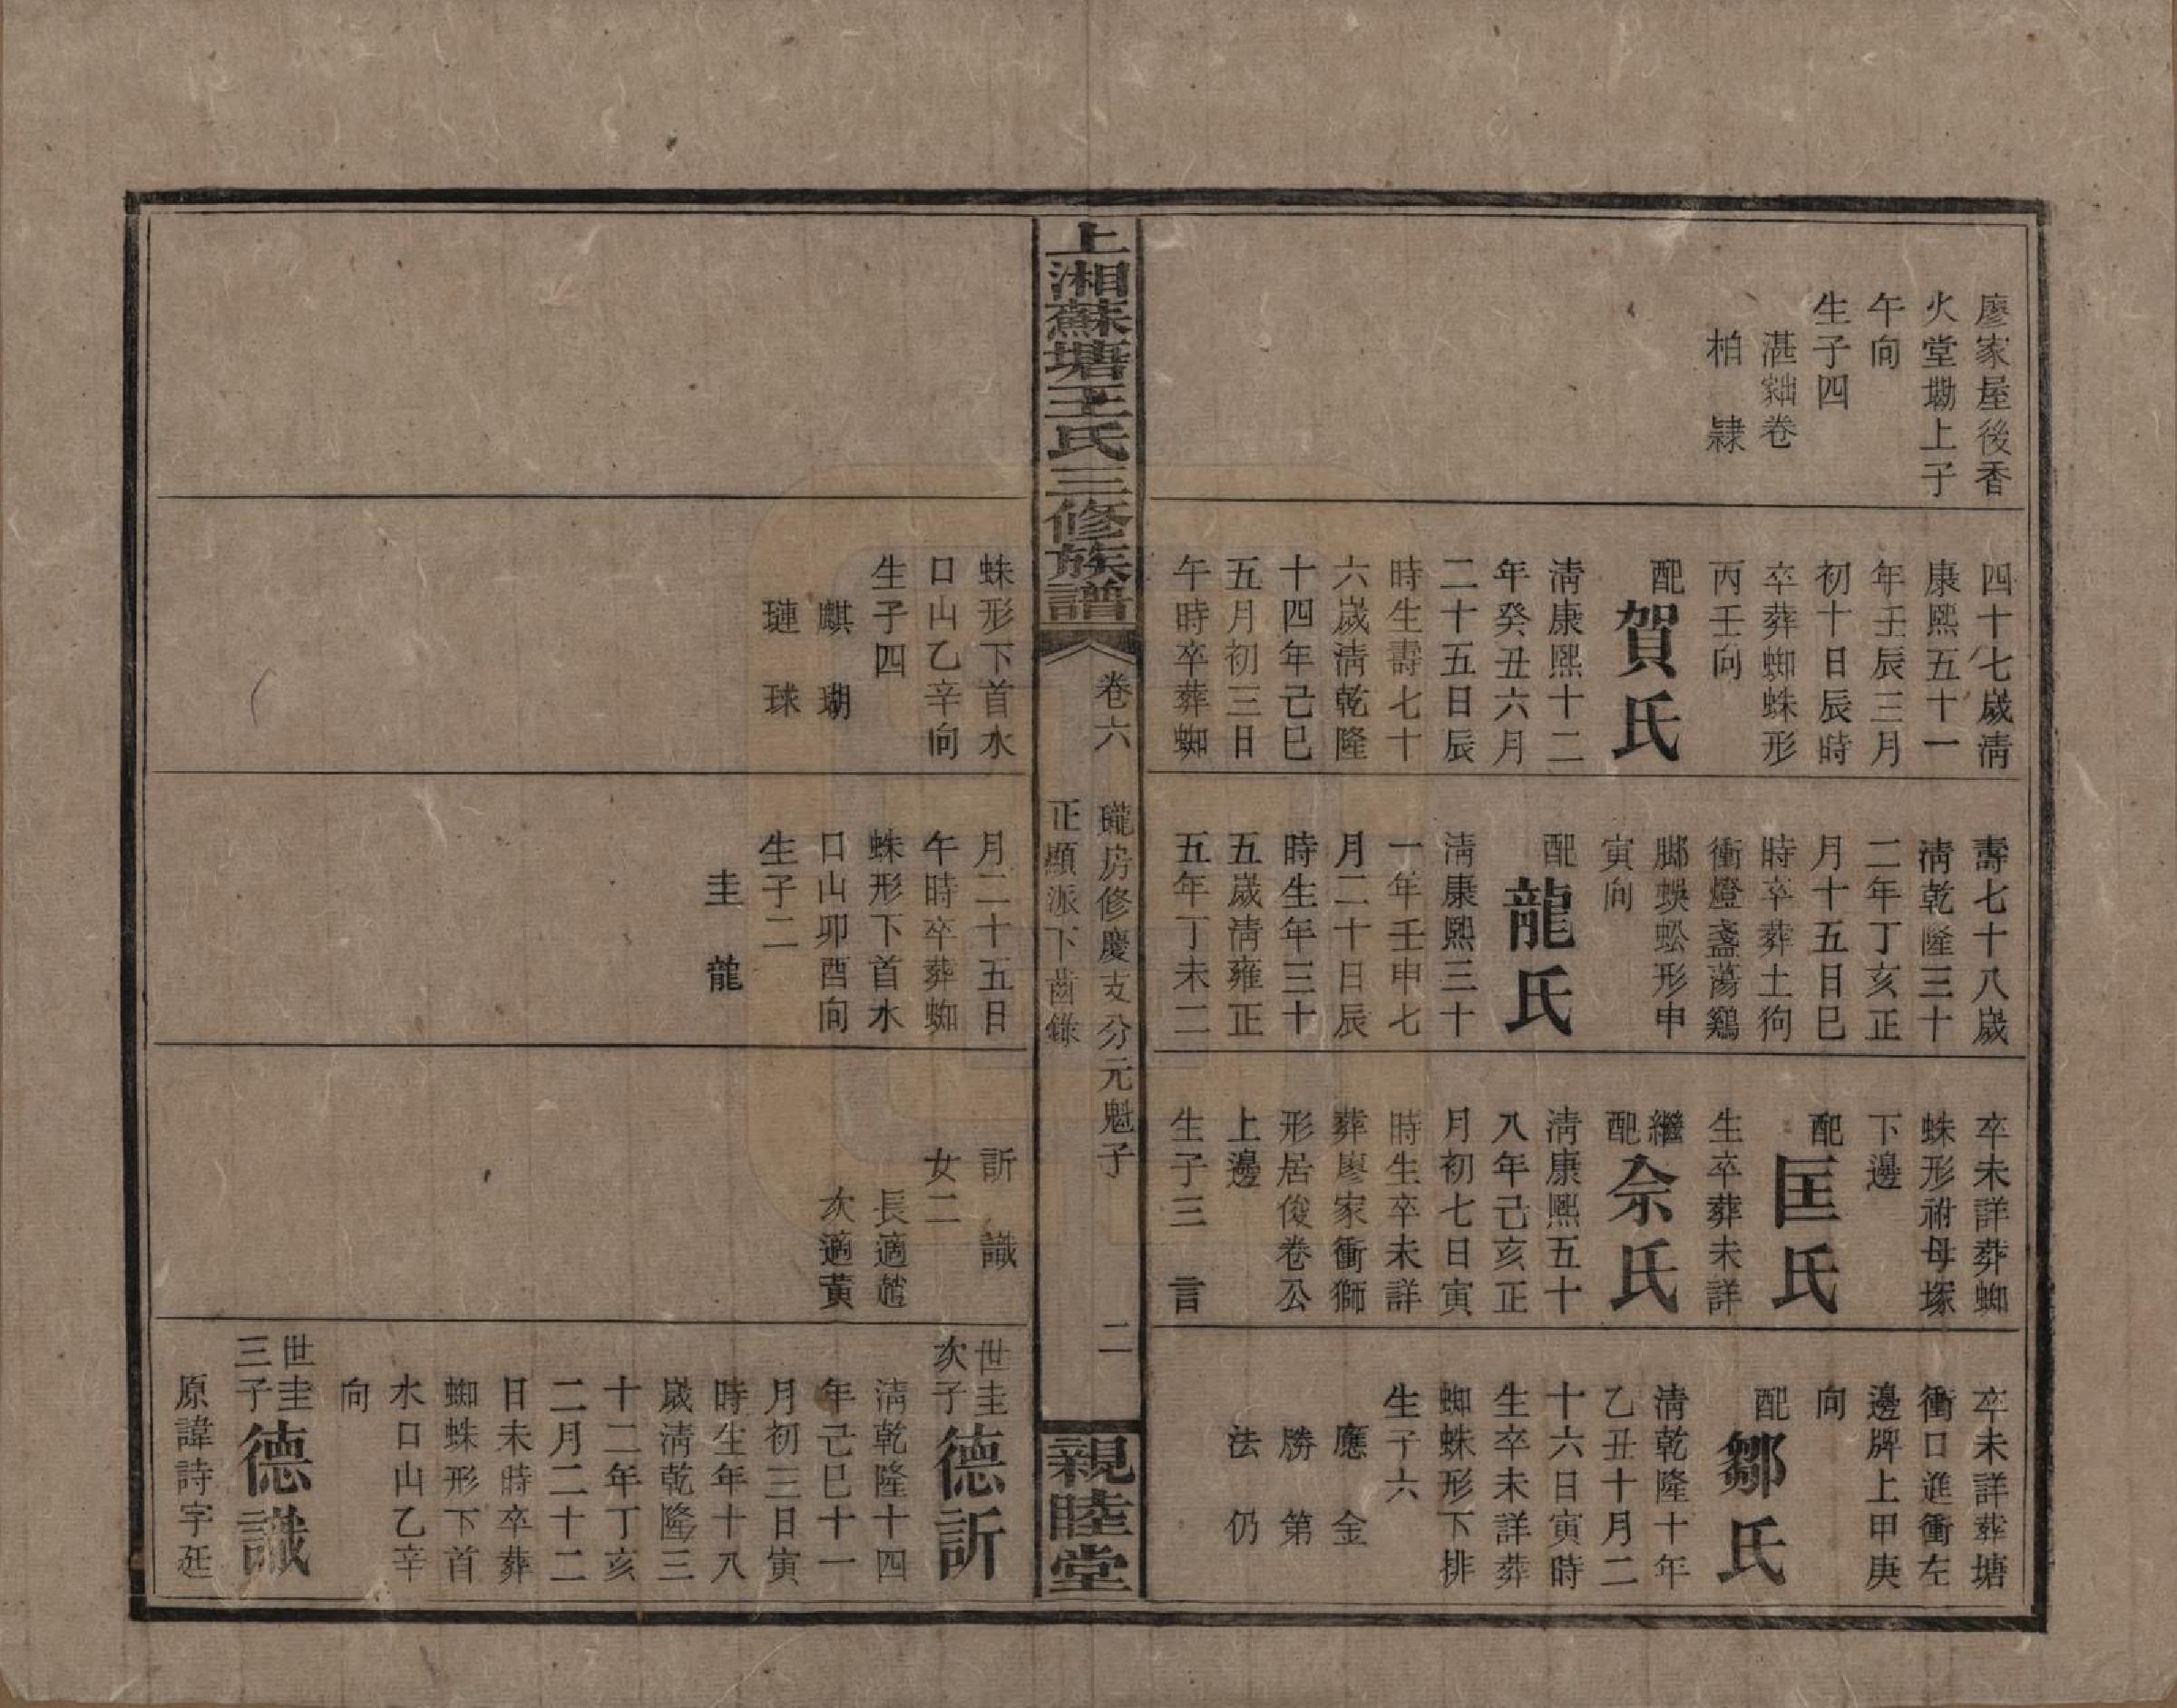 廖家屋後香
火堂墈上子
午向
生子四
湛 卷
柏 隸
四十七歲淸
康熙五十一
年壬辰三月
初十日辰時
卒葬蜘蛛形
丙壬向
配賀氏
淸康熙十二
年癸丑六月
二十五日辰
時生壽七十
六歲淸乾隆
十四年己巳
五月初三日
午時卒葬蜘
壽七十八歲
淸乾隆三十
二年丁亥正
月十五日巳
時卒葬土狗
衝燈盞蕩鷄
脚蜈蚣形申
寅向
配龍氏
淸康熙三十
一年壬申七
月二十日辰
時生年三十
五歲淸雍正
五年丁未二
卒未詳葬蜘
蛛形祔母塚
下邊
配匡氏
生卒葬未詳
繼配佘氏
淸康熙五十
八年己亥正
月初七日寅
時生卒未詳
葬廖家衝獅
形居俊卷公
上邊
生子三 言
卒未詳葬塘
衝口進衝左
邊牌上甲庚
向
配鄒氏
淸乾隆十年
乙丑十月二
十六日寅時
生卒未詳葬
蜘蛛形下排
生子六
應 金
勝 第
法 仍
上湘蘇塘王氏三修族譜
卷六
瓏房修慶支分元魁子
正顯派下齒錄
二
親睦堂
蛛形下首水
口山乙辛向
生子四
麒 瑚
璉 球
月二十五日
午時卒葬蜘
蛛形下首水
口山卯酉向
生子二
圭 龍
訢 識
女二
長適趙
次適黃
世圭次子德訢
淸乾隆十四
年己巳十一
月初三日寅
時生年十八
歲淸乾隆三
十二年丁亥
二月二十二
日未時卒葬
蜘蛛形下首
水口山乙辛
向
世圭三子德識
原諱詩字廷